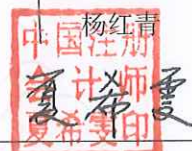 杨红青
中国注册
会计师
夏希雯印
夏希雯